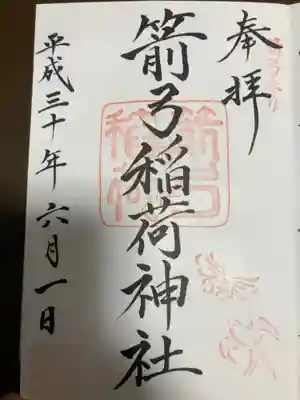 奉拝
箭弓稲荷神社
平成三十年六月一日
箭弓
稲荷